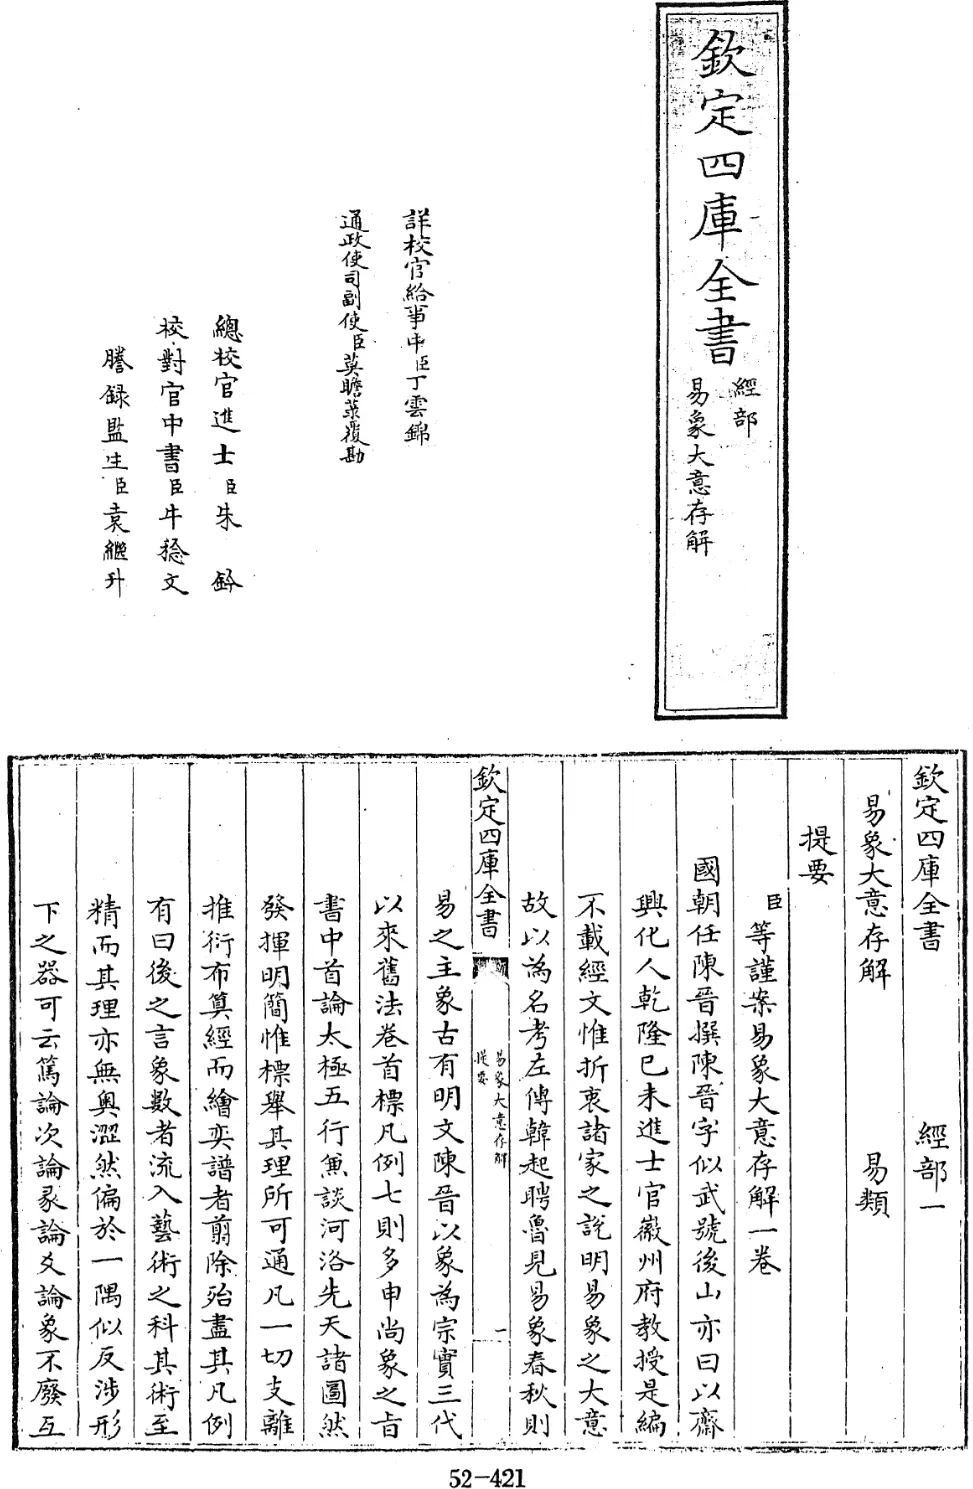 欽定四庫全書
經部
易象大意存解
詳校官給事中臣丁雲錦
通政使司副使臣莫瞻菉覆勘
總校官進士臣朱鈐
校對官中書臣牛稔文
謄録監生臣袁繼升
欽定四庫全書 經部一
易象大意存解 易類
提要
臣等謹案易象大意存解一卷
國朝任陳晉撰陳晉字似武號後山亦曰以齋
興化人乾隆己未進士官徽州府教授是編
不載經文惟折衷諸家之說明易象之大意
故以為名考左傳韓起聘魯見易象春秋則
欽定四庫全書 易象大意存解 提要 一
易之主象古有明文陳晉以象為宗實三代
以來舊法卷首標凡例七則多申尚象之旨
書中首論太極五行兼談河洛先天諸圖然
發揮明簡惟標舉其理所可通凡一切支離
推衍布算經而繪奕譜者翦除殆盡其凡例
有曰後之言象數者流入藝術之科其術至
精而其理亦無奥澀然偏於一隅似反涉形
下之器可云篤論次論彖論爻論象不廢互
52-421